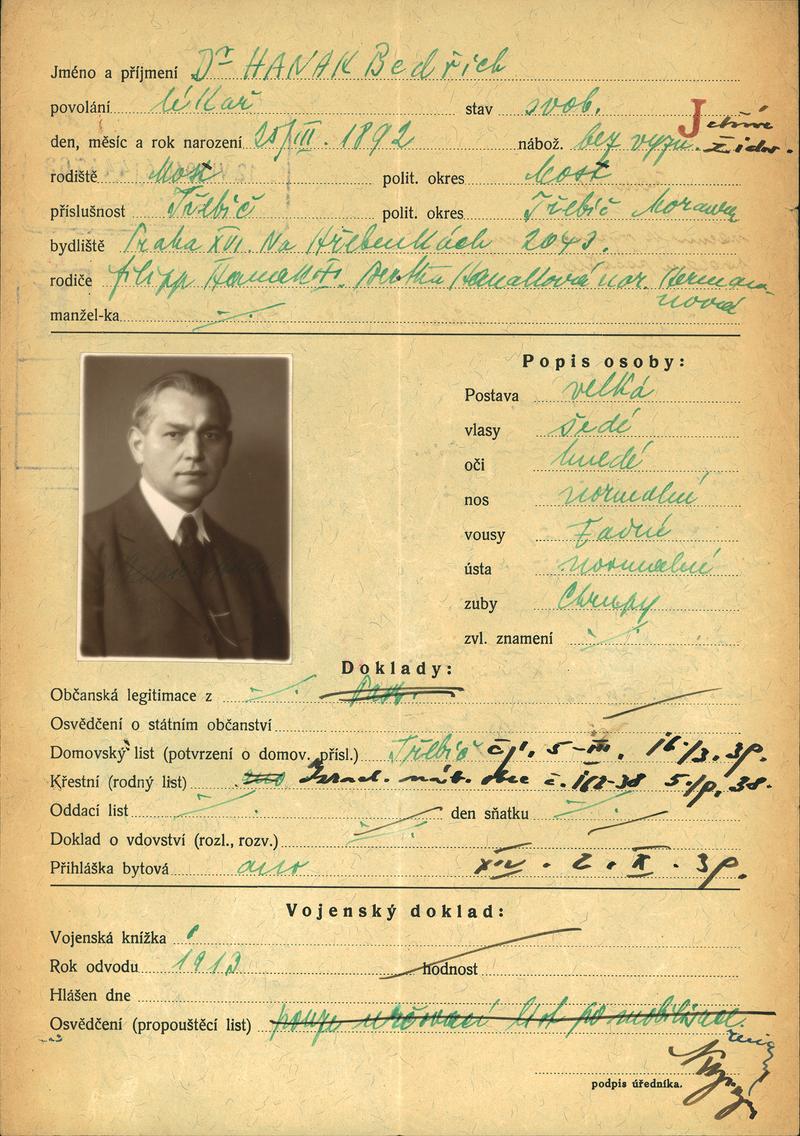 Jméno a příjmení Dr HANAK Bedřich
povolání lékař stav svob.
den, měsíc a rok narození 25/III. 1892 nábož. bez vyzn. J
židov.
rodiště Most polit. okres Most
příslušnost Třebíč polit. okres Třebíč Morava
bydliště Praha XVI. Na Hřebenkách 2043.
rodiče Filipp Hanak Bertha Hanakková nar. Herman-
nová
manžel-ka ./.
Popis osoby:
Postava velká
vlasy šedé
oči hnedé
nos normalní
vousy žadné
ústa normalní
zuby Chrupy
zvl. znamení ./.
Doklady:
Občanská legitimace z ./. Pass.
Osvědčení o státním občanství
Domovský list (potvrzení o domov. přísl.) Třebíč čj. 5-III. 16/3. 39.
Křestní (rodný list) ano Israel. náb. obec č. 162-38 5./9. 38.
Oddací list ./. den sňatku ./.
Doklad o vdovství (rozl., rozv.) ./.
Přihláška bytová ano XIV. 2. X. 39.
Vojenský doklad:
Vojenská knížka
Rok odvodu 1913 hodnost
Hlášen dne
Osvědčení (propouštěcí list) pouze určovací list po mobilisaci
podpis úředníka.